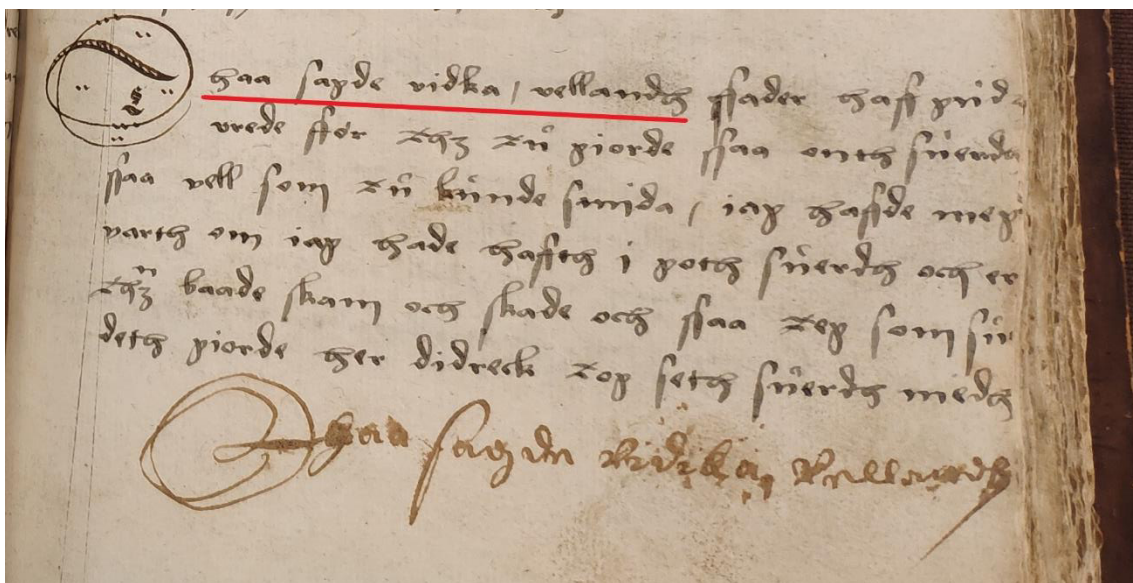 Thaa sagde vidka, vellandh ffader haff gud
vrede ffor thz tw giorde ssaa onth swerd
ssaa vell som tw kunde smida, iag haffde meg
varth om iag hade haffth i goth swerdh och er
baade skam och skade och ssaa teg som
deth giorde her didreck tog seth swerdh medh
Thaa sagde vidken vellandh